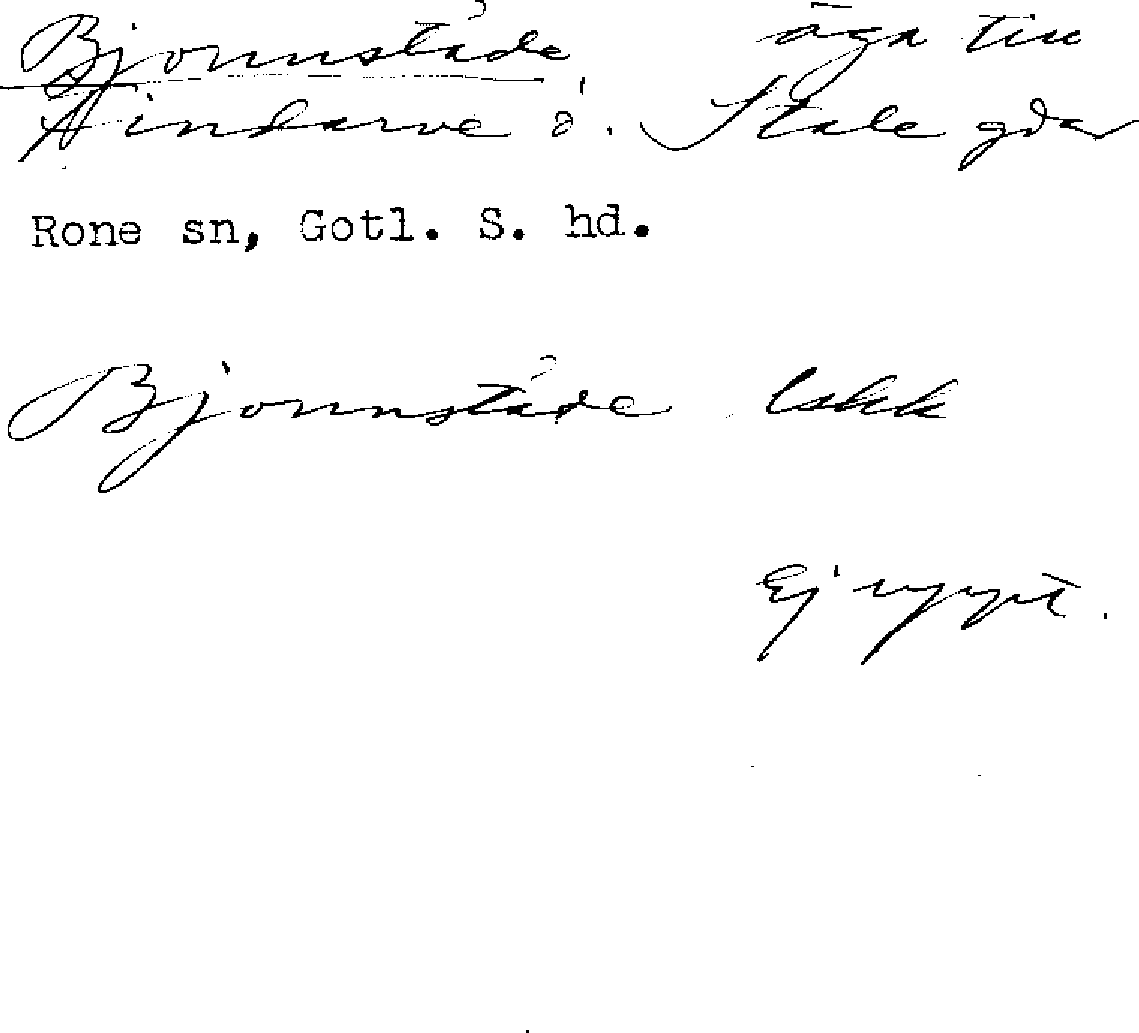 Bjonnståde äga till
Hindarve o. Stale gdar
Rone sn, Gotl. S. hd.
Bjonnståde Eskk
Ej uppt.